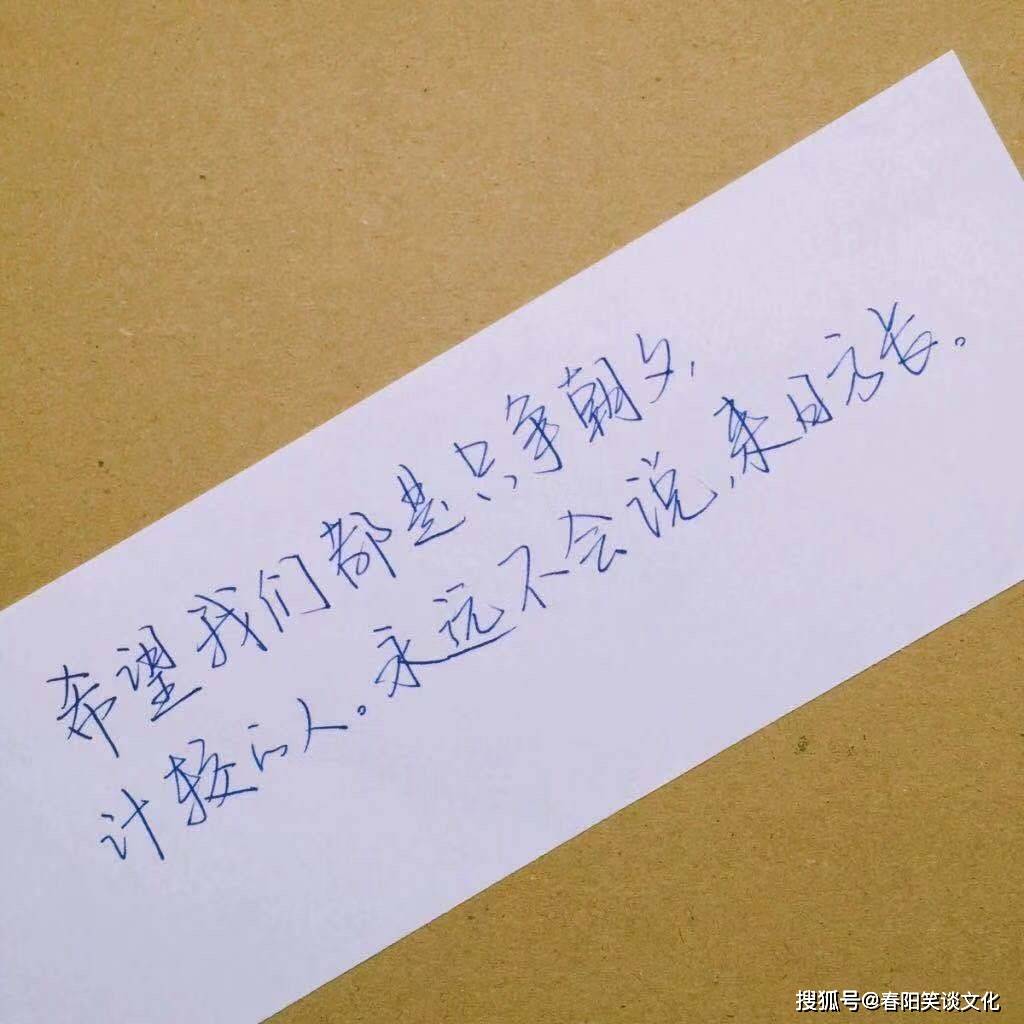 希望我们都是只争朝夕,
计较的人。永远不会说,来日方长。
搜狐号@春阳笑谈文化